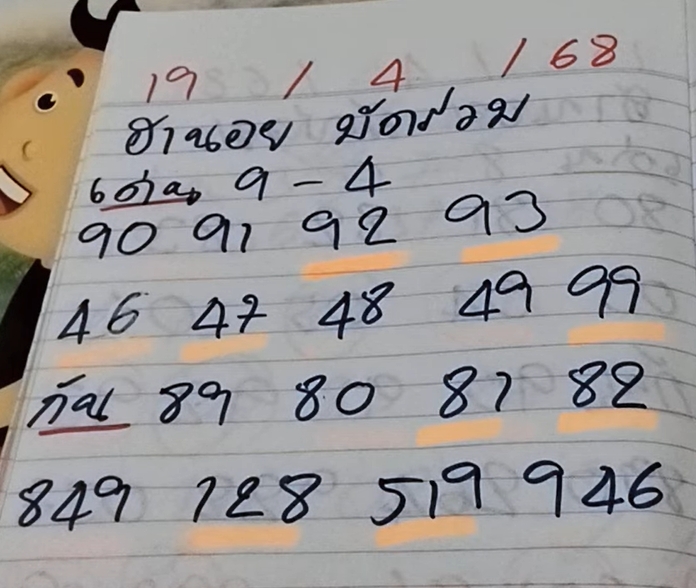 19 / 4 / 68
ฮานอย มัดรวม
เด่น 9 - 4
90 91 92 93
46 47 48 49 99
กัน 89 80 81 82
849 128 519 946